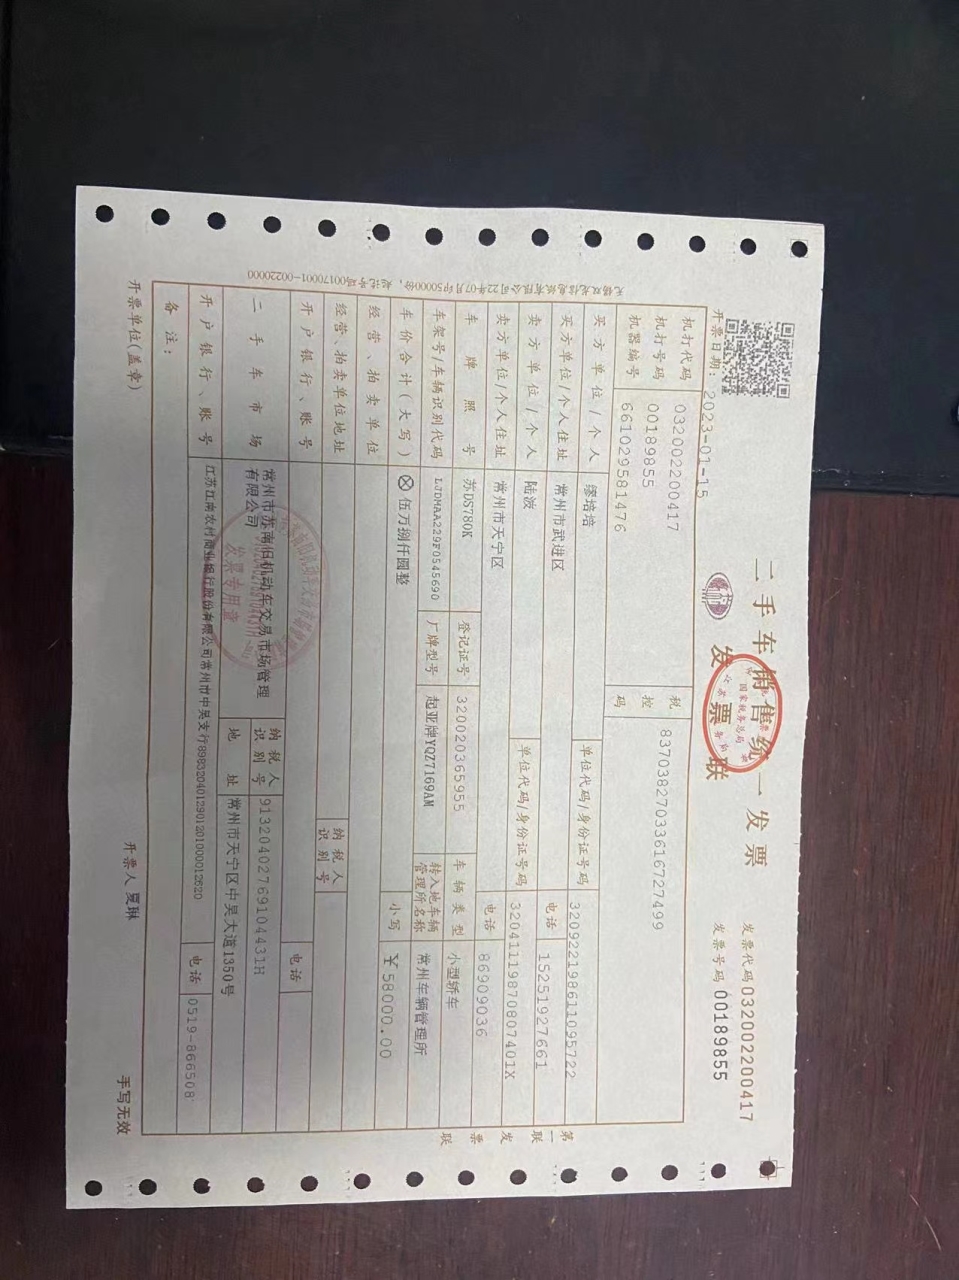 二手车销售统一发票
发票联
发票代码 032002200417
发票号码 00189855
开票日期: 2023-01-15
机打代码 032002200417
机打号码 00189855
机器编号 661029581476
税控码 83703827033616727499
买方单位/个人 缪培培 单位代码/身份证号码 320922198611095722
买方单位/个人住址 常州市武进区 电话 15251927661
卖方单位/个人 陆波 单位代码/身份证号码 32041119870807401X
卖方单位/个人住址 常州市天宁区 电话 86909036
车牌照号 苏DS780K 登记证号 320020365955 车辆类型 小型轿车
车架号/车辆识别代码 LJDMAA229F0545690 厂牌型号 起亚牌YQZ7169AM 转入地车辆管理所名称 常州车辆管理所
车价合计(大写) ⊗伍万捌仟圆整 小写 ¥58000.00
经营、拍卖单位
经营、拍卖单位地址 纳税人识别号
开户银行、账号 电话
二手车市场 常州市苏南旧机动车交易市场管理有限公司 纳税人识别号 91320402769104431H
地址 常州市天宁区中吴大道1350号
开户银行、账号 江苏江南农村商业银行股份有限公司常州市中吴支行89832040129012010000012620 电话 0519-866508
备注:
开票单位(盖章) 开票人 夏琳 手写无效
第一联 发票联
国家税务总局
发票专用章